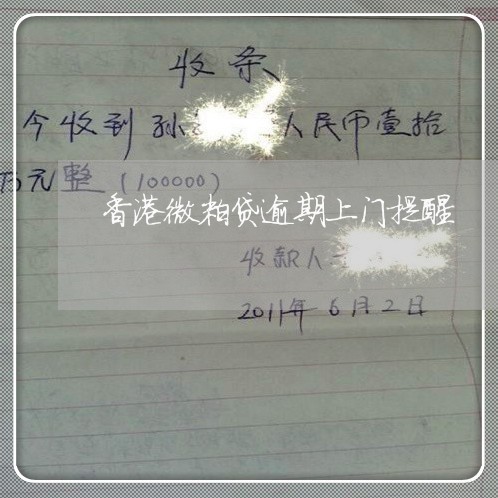 收条
今收到孙 人民币壹拾
万元整(100000)
香港微粕贷逾期上门提醒
收款人
2011年6月2日